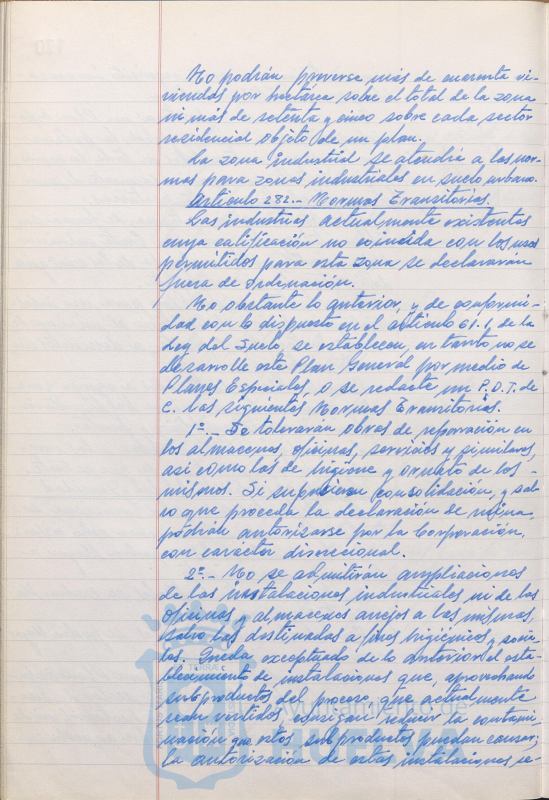 No podrán preverse más de cuarenta vi-
viendas por hectárea sobre el total de la zona
ni más de setenta y cinco sobre cada sector
residencial objeto de un plan.
La zona industrial se atendrá a las nor-
mas para zonas industriales en suelo urbano.
Artículo 282.- Normas Transitorias.
Las industrias actualmente existentes
cuya calificación no coincida con los usos
permitidos para esta zona se declararán
fuera de Ordenación.
No obstante lo anterior, y de conformi-
dad con lo dispuesto en el artículo 61.1, de la
Ley del Suelo, se establecen, en tanto no se
desarrolle este Plan General por medio de
Planes Especiales, o se redacte un P.D.T. de
C. las siguientes Normas Transitorias.
1ª.- Se tolerarán obras de reparación en
los almacenes, oficinas, servicios y similares,
así como las de higiene y ornato de los -
mismos. Si supusieran consolidación, y sal-
vo que proceda la declaración de ruina,
podrán autorizarse por la Corporación,
con caracter discreccional.
2ª.- No se admitirán ampliaciones
de las instalaciones industriales ni de las
oficinas y almacenes anejos a las mismas,
salvo las destinadas a fines higiénicos y socia-
les. Queda exceptuado de lo anterior el esta-
blecimiento de instalaciones que, aprovechando
subproductos del proceso que actualmente
sean vertidos, consigan reducir la contami-
nación que estos subproductos puedan causar;
la autorización de estas instalaciones se-
Ayuntamiento de
HUELVA